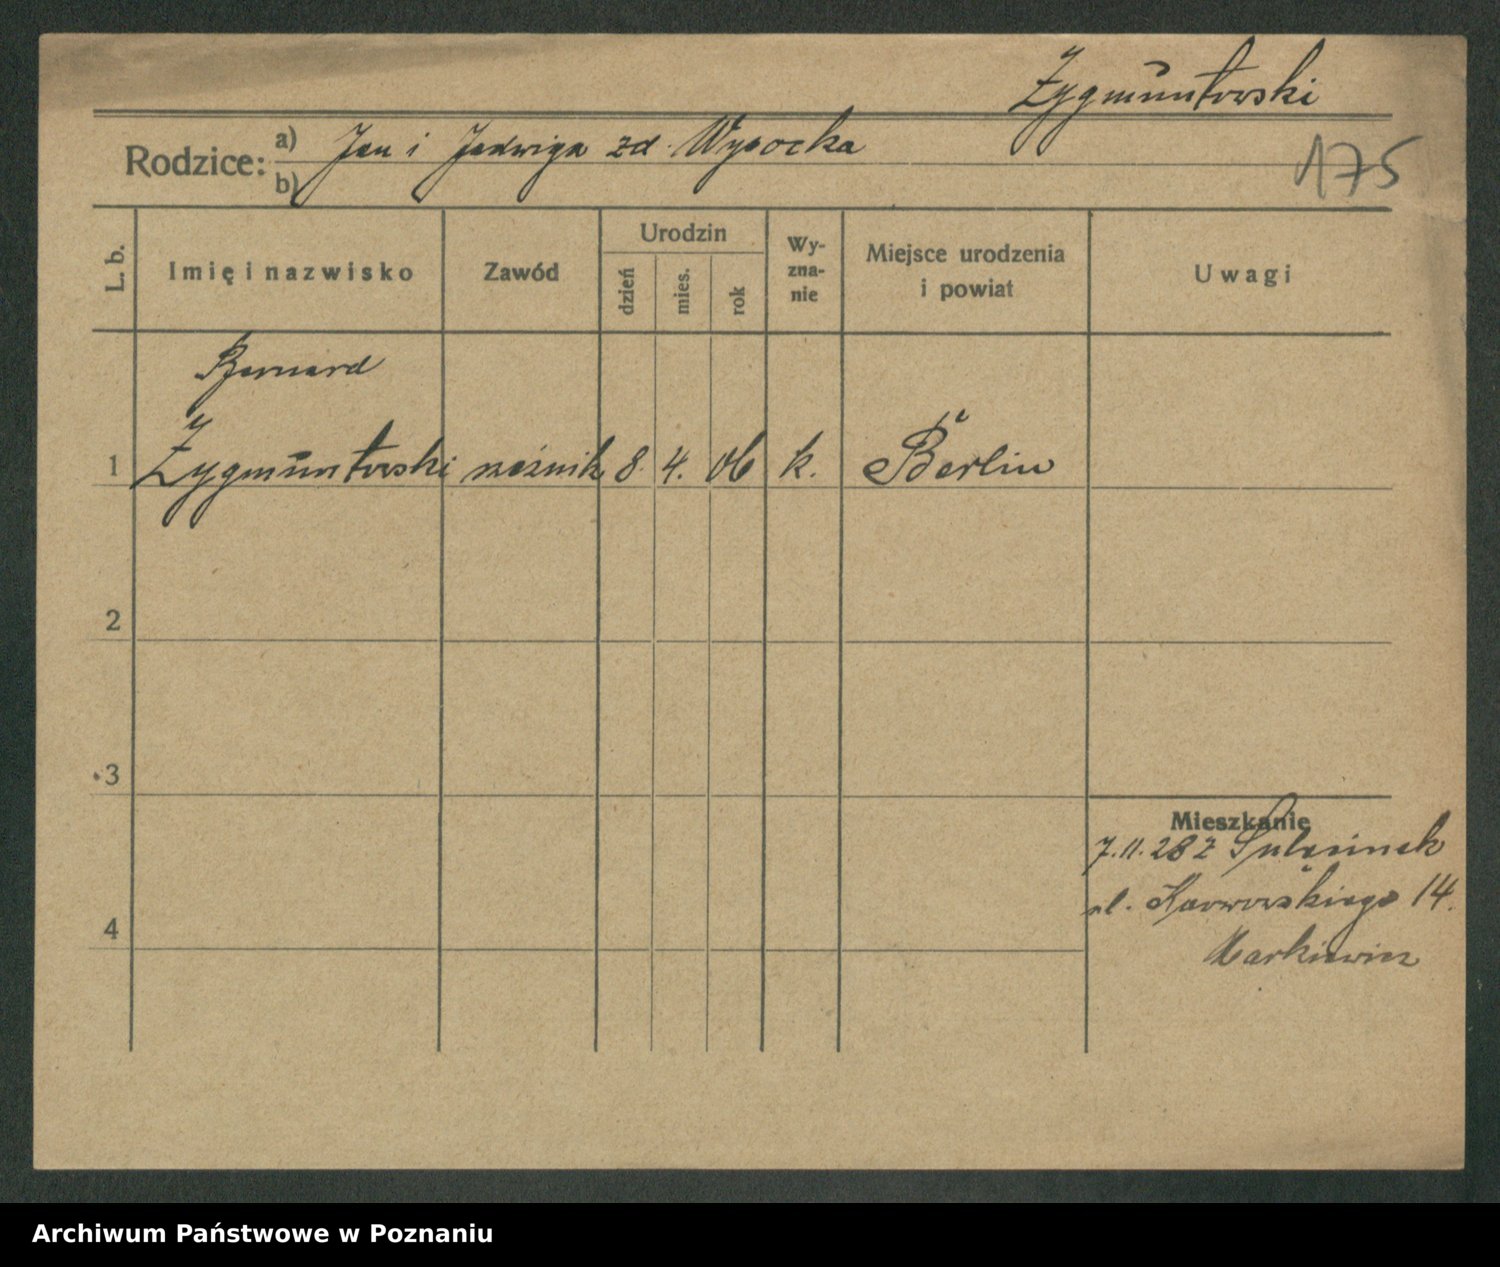 Zygmuntowski
Rodzice: a) Jan i Jadwiga zd. Wysocka
b)
175
L. b.
Imię i nazwisko
Zawód
Urodzin
dzień
mies.
rok
Wy-
zna-
nie
Miejsce urodzenia
i powiat
Uwagi
Bernard
1 Zygmuntowski rzeźnik 8. 4. 06 k. Berlin
2
3
Mieszkanie
7.11.28 z Sulęcinek
ul. Karwowskiego 14.
4
Markiewicz
Archiwum Państwowe w Poznaniu